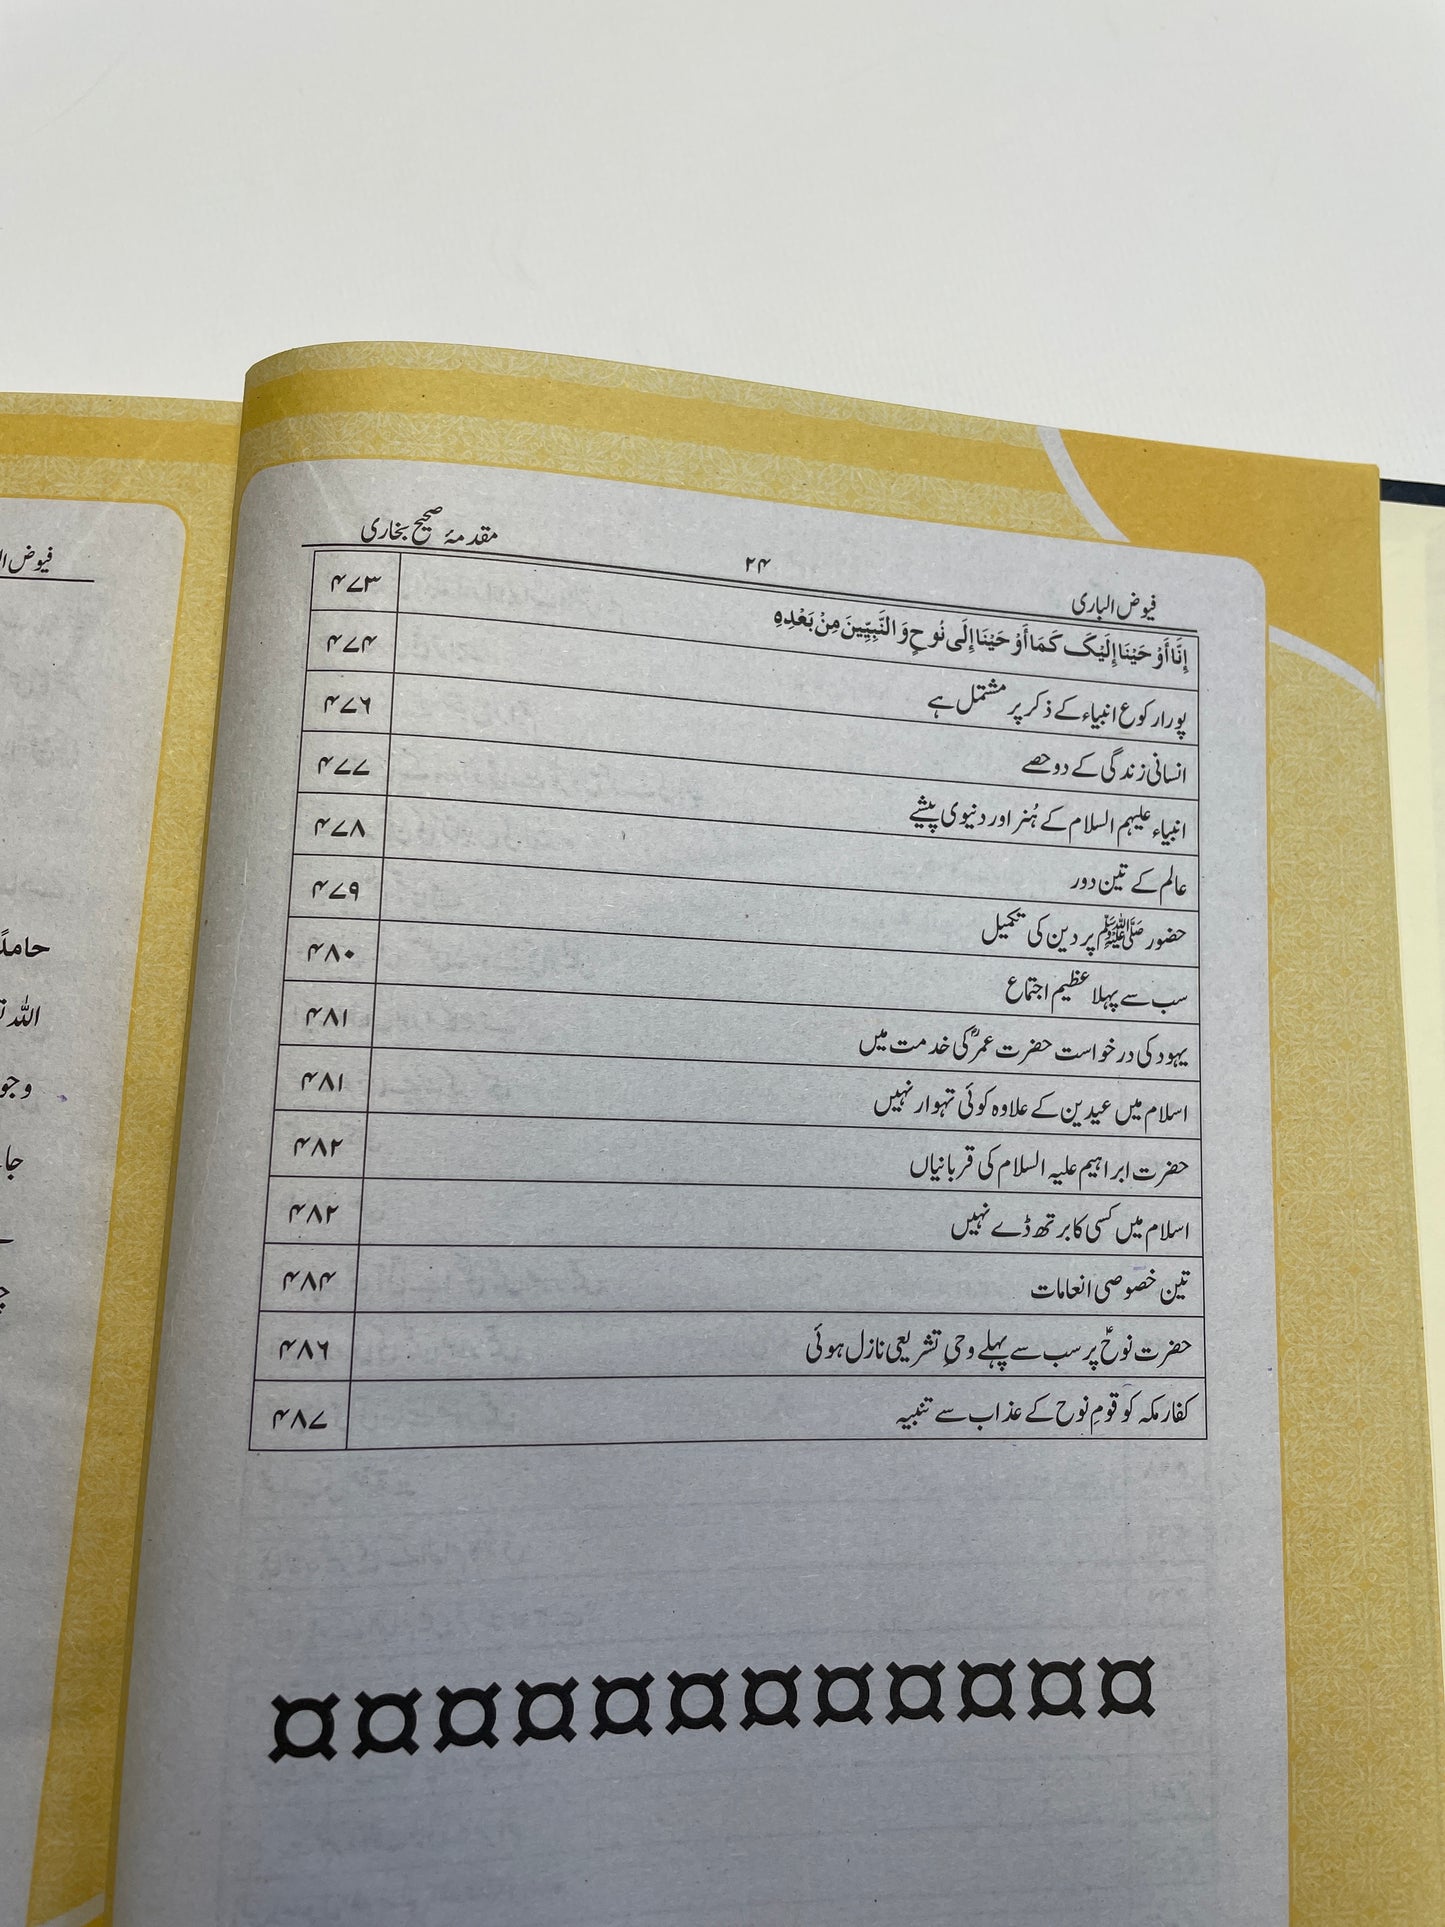 فیوض الباری ۲۴ مقدمۂ صحیح بخاری
إِنَّا أَوْحَيْنَا إِلَيْكَ كَمَا أَوْحَيْنَا إِلَى نُوحٍ وَ النَّبِيِّينَ مِنْ بَعْدِهِ ۴۷۳
پورا رکوع انبیاء کے ذکر پر مشتمل ہے ۴۷۴
انسانی زندگی کے دو حصے ۴۷۶
انبیاء علیہم السلام کے ہُنر اور دنیوی پیشے ۴۷۷
عالم کے تین دور ۴۷۸
حضور ﷺ پر دین کی تکمیل ۴۷۹
سب سے پہلا عظیم اجتماع ۴۸۰
یہود کی درخواست حضرت عمرؓ کی خدمت میں ۴۸۱
اسلام میں عیدین کے علاوہ کوئی تہوار نہیں ۴۸۱
حضرت ابراہیم علیہ السلام کی قربانیاں ۴۸۲
اسلام میں کسی کا برتھ ڈے نہیں ۴۸۲
تین خصوصی انعامات ۴۸۴
حضرت نوحؑ پر سب سے پہلے وحیِ تشریعی نازل ہوئی ۴۸۶
کفار مکہ کو قومِ نوح کے عذاب سے تنبیہ ۴۸۷
فیوض
حامدً
اللہ
وجو
جا